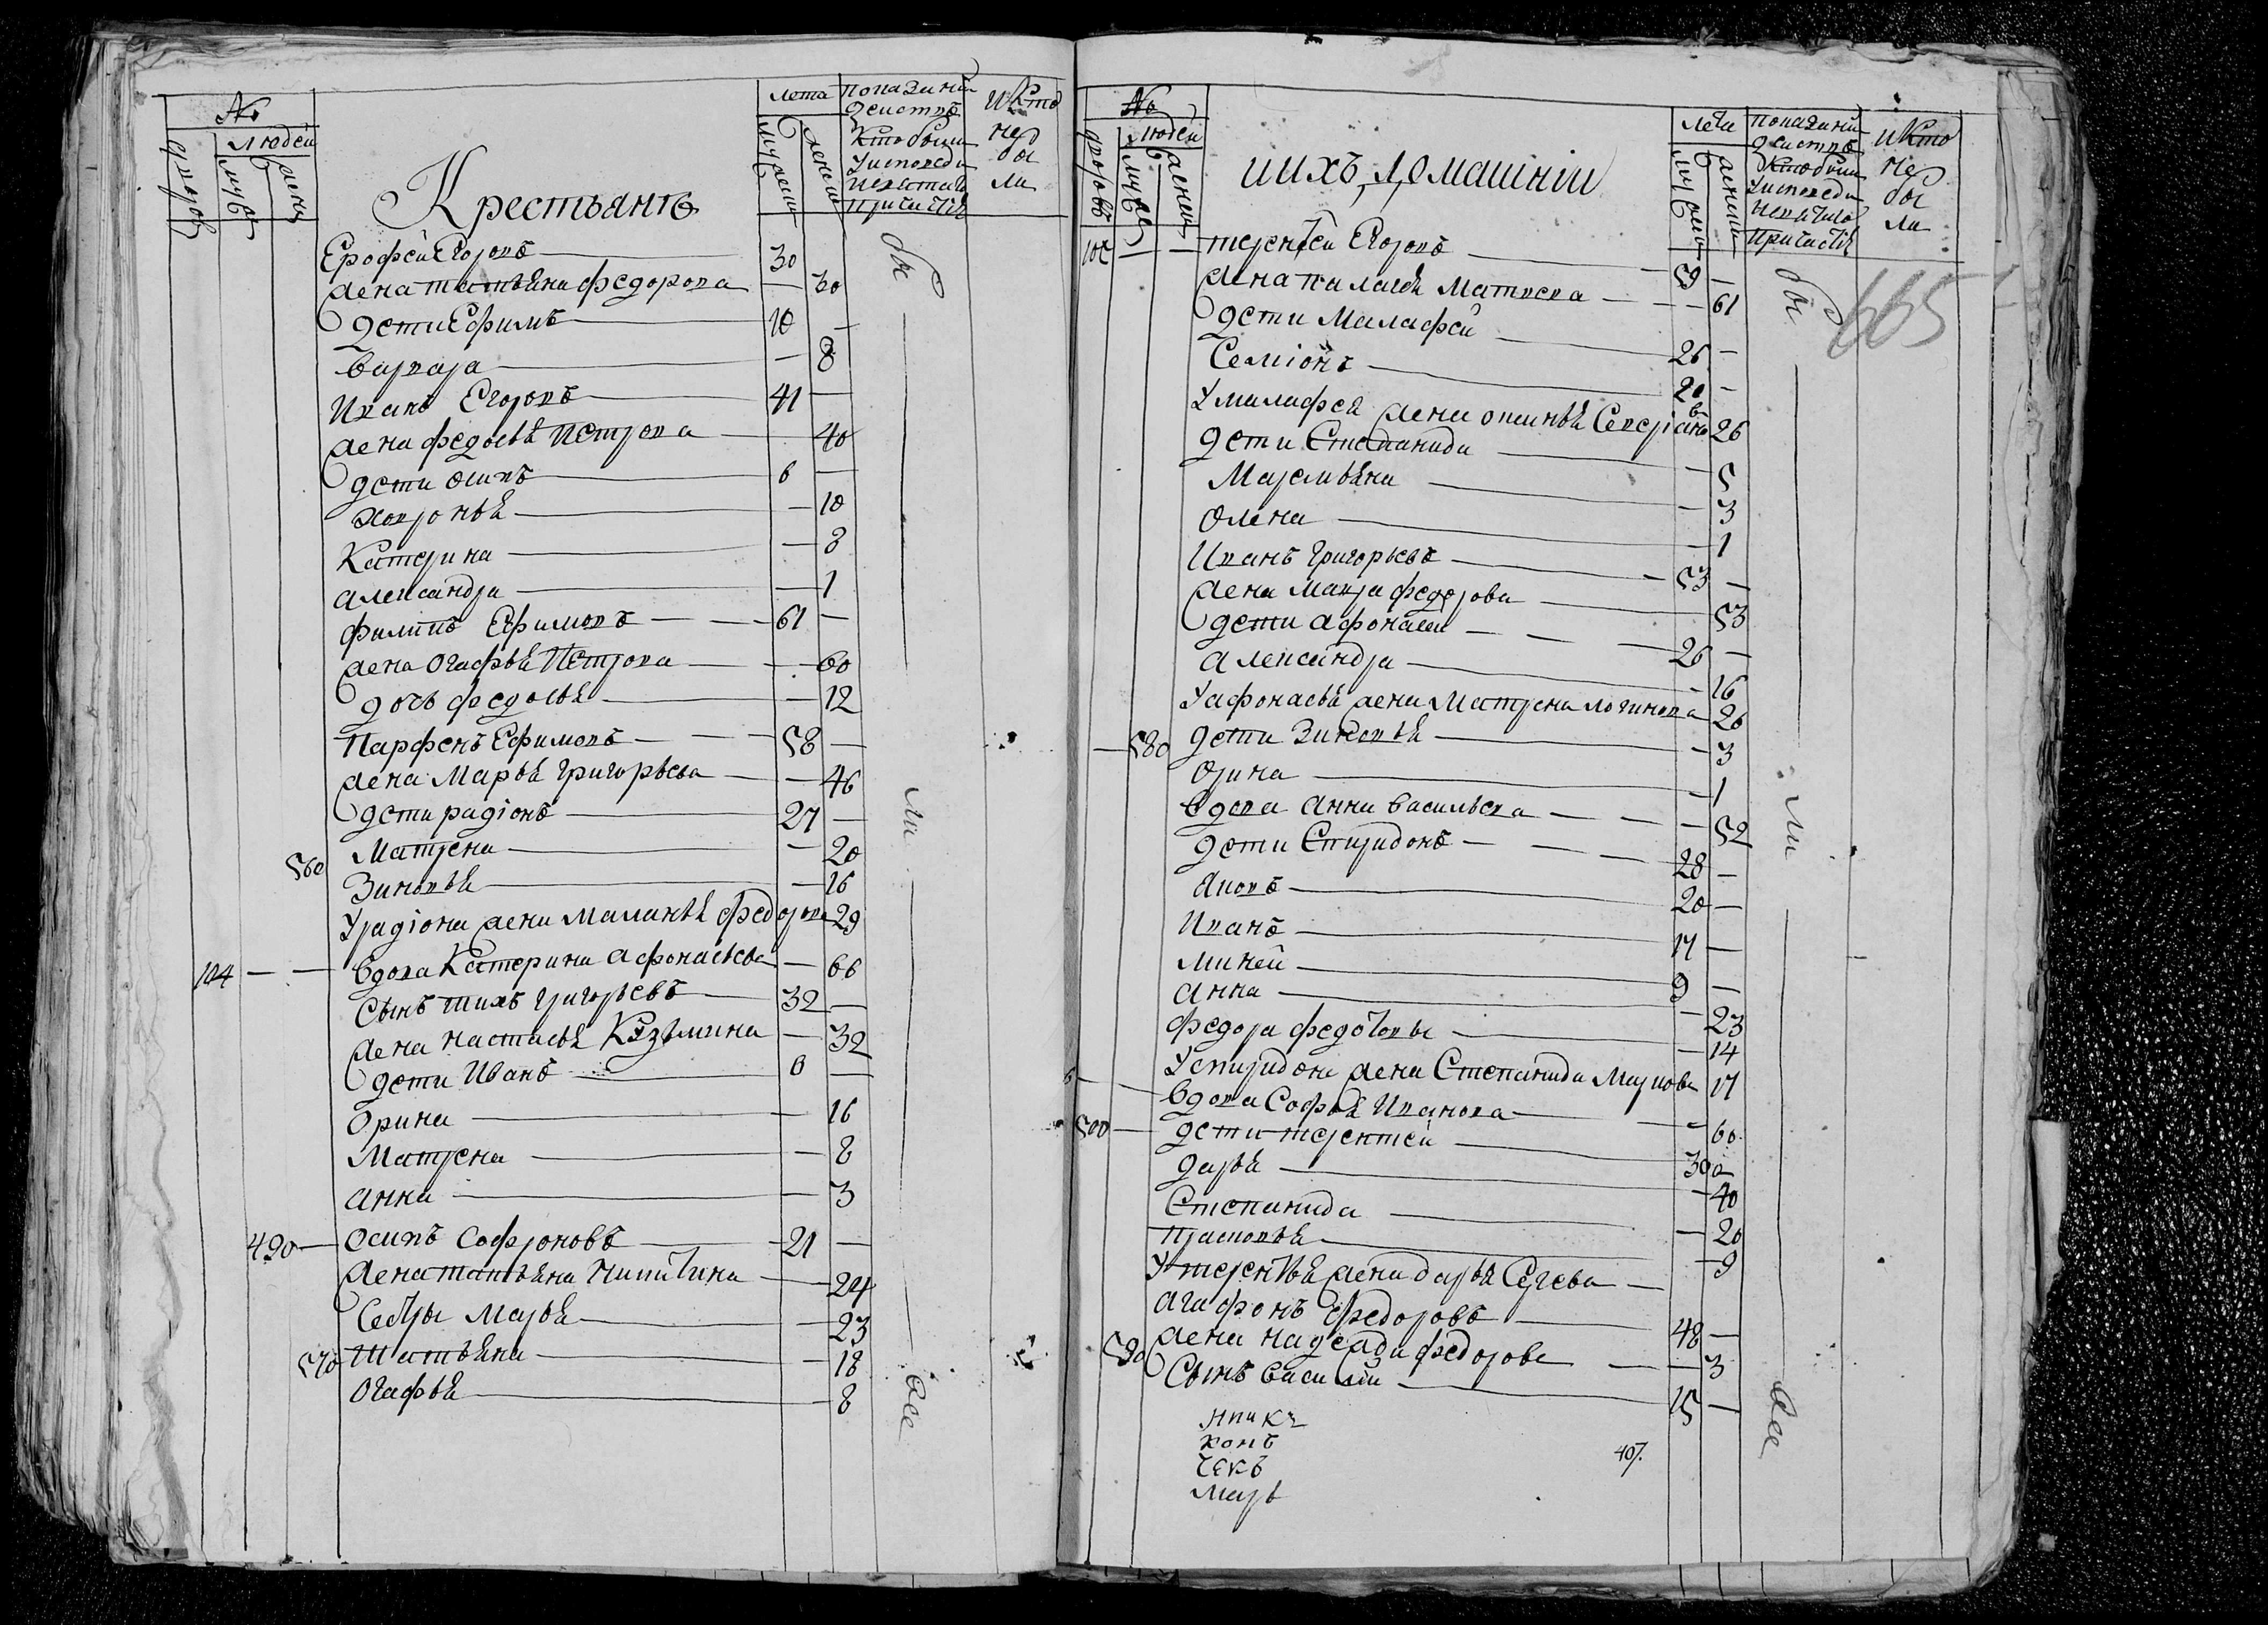 №
людей
дворовъ
мужес
женск
Крестьянъ
лета
мужеска
женска
показаніи
действъ
Кто были
у исповеди
и святаго
причастія
и Кто
не
бы
ли
Ерофей Егоровъ 30
жена татьяна федорова — 30
дети Ефимъ 10 —
Варвара — 8
Иванъ Егоровъ 41 —
жена федосья Петрова 40
дети осипъ 6 —
Ховронья — 10
Катерина — 8
александра — 1
филипъ Ефимовъ 61 —
жена огафья Петрова — 60
дочь федосья — 12
Парфенъ Ефимовъ 58 —
жена Марья григорьева — 46
дети радіонъ 27 —
560 Матрена — 20
Зиновья — 16
У радіона жена Маланья федорова 29
104 — — Вдова Катерина афонасьева — 66
Сынъ тихъ григорьевъ 32 —
жена настасья Козьмина — 32
дети Иванъ 6 —
Орина — 16
Матрена — 8
анна — 3
490 — осипъ Софроновъ 21 —
жена татьяна Никитина 24
Сестры Марья — 23
570 татьяна — 18
огафья 8
бы
ли
все
№
людей
дворовъ
мужес
женск
ихъ домашніи
лета
мужеска
женска
показаніи
действъ
Кто были
у исповеди
и святаго
причастія
и Кто
не
бы
ли
665
105 — — терентей Егоровъ 59 —
жена палагея Матвеева — 61
дети Малафей 26 —
Семіонъ 20 —
У малафея жена овсинья Северіанова 26
дети Степанида — 5
Маремьяна — 3
олена — 1
Иванъ григорьевъ 53 —
жена мавра федорова 53
дети афонасеи 26 —
александра — 16
У афонасья жена Матрена логинова 26
— 580 дети Зиновья — 3
орина — 1
Вдова анна Васильева — 52
дети Спиридонъ 28 —
яковъ 20 —
Иванъ 17 —
михей 9 —
анна — 23
федора федотовы — 14
У спиридона жена Степанида Маркова 17
6 — Вдова Софья Иванова — 60
500 — дети терентей 39
дарья — 40
Степанида — 20
прасковья — 9
У терентья жена дарья Сергева —
агафонъ федоровъ 48 —
590 жена надежда федорова — 3
Сынъ Василій 15 —
407.
бы
ли
все